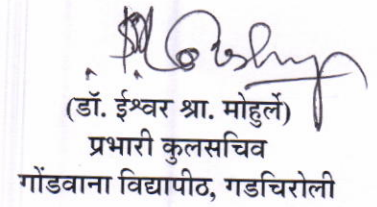 (डॉ. ईश्वर श्रा. मोहुर्ले)
प्रभारी कुलसचिव
गोंडवाना विद्यापीठ, गडचिरोली